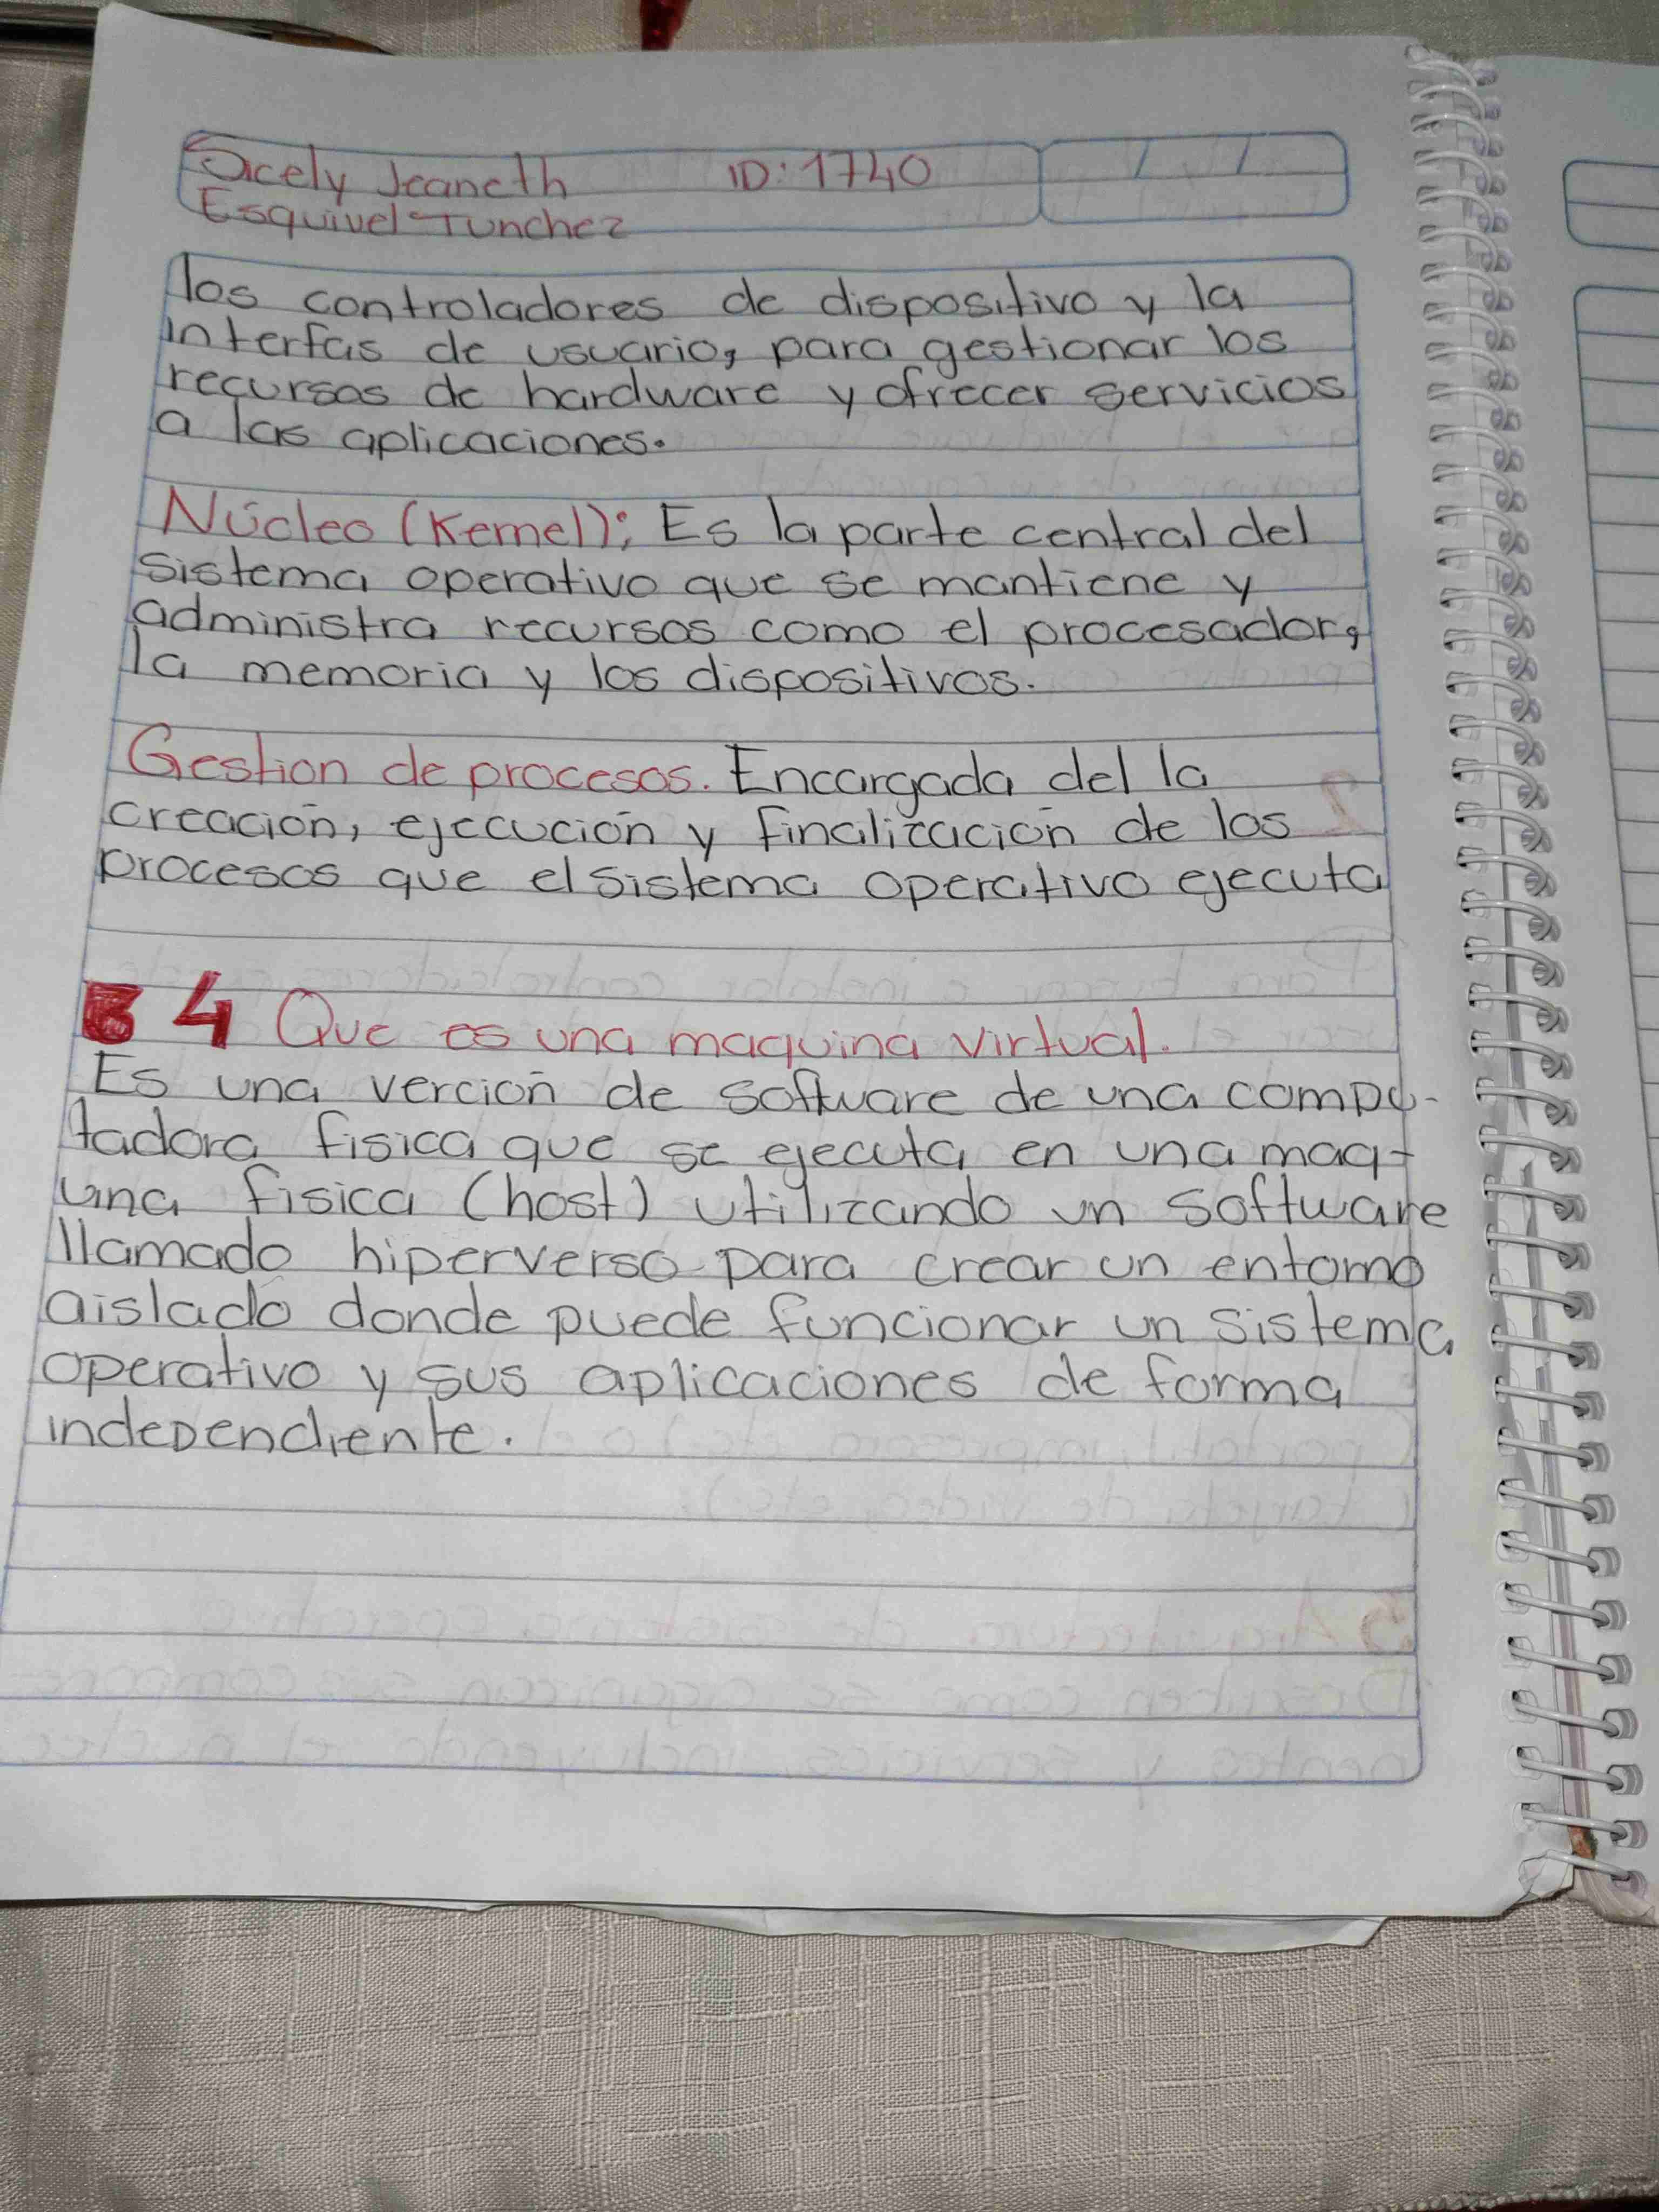 Sicely Jeaneth ID: 1740
Esquivel Tunchez
los controladores de dispositivo y la
interfas de usuario, para gestionar los
recursos de hardware y ofrecer servicios
a las aplicaciones.
Núcleo (Kernel); Es la parte central del
sistema operativo que se mantiene y
administra recursos como el procesador,
la memoria y los dispositivos.
Gestion de procesos. Encargada del la
creación, ejecución y finalización de los
procesos que el sistema operativo ejecuta
4 Que es una maquina virtual.
Es una verción de software de una compu-
tadora fisica que se ejecuta en una maq-
uina fisica (host) utilizando un software
llamado hiperverso para crear un entorno
aislado donde puede funcionar un sistema
operativo y sus aplicaciones de forma
independiente.